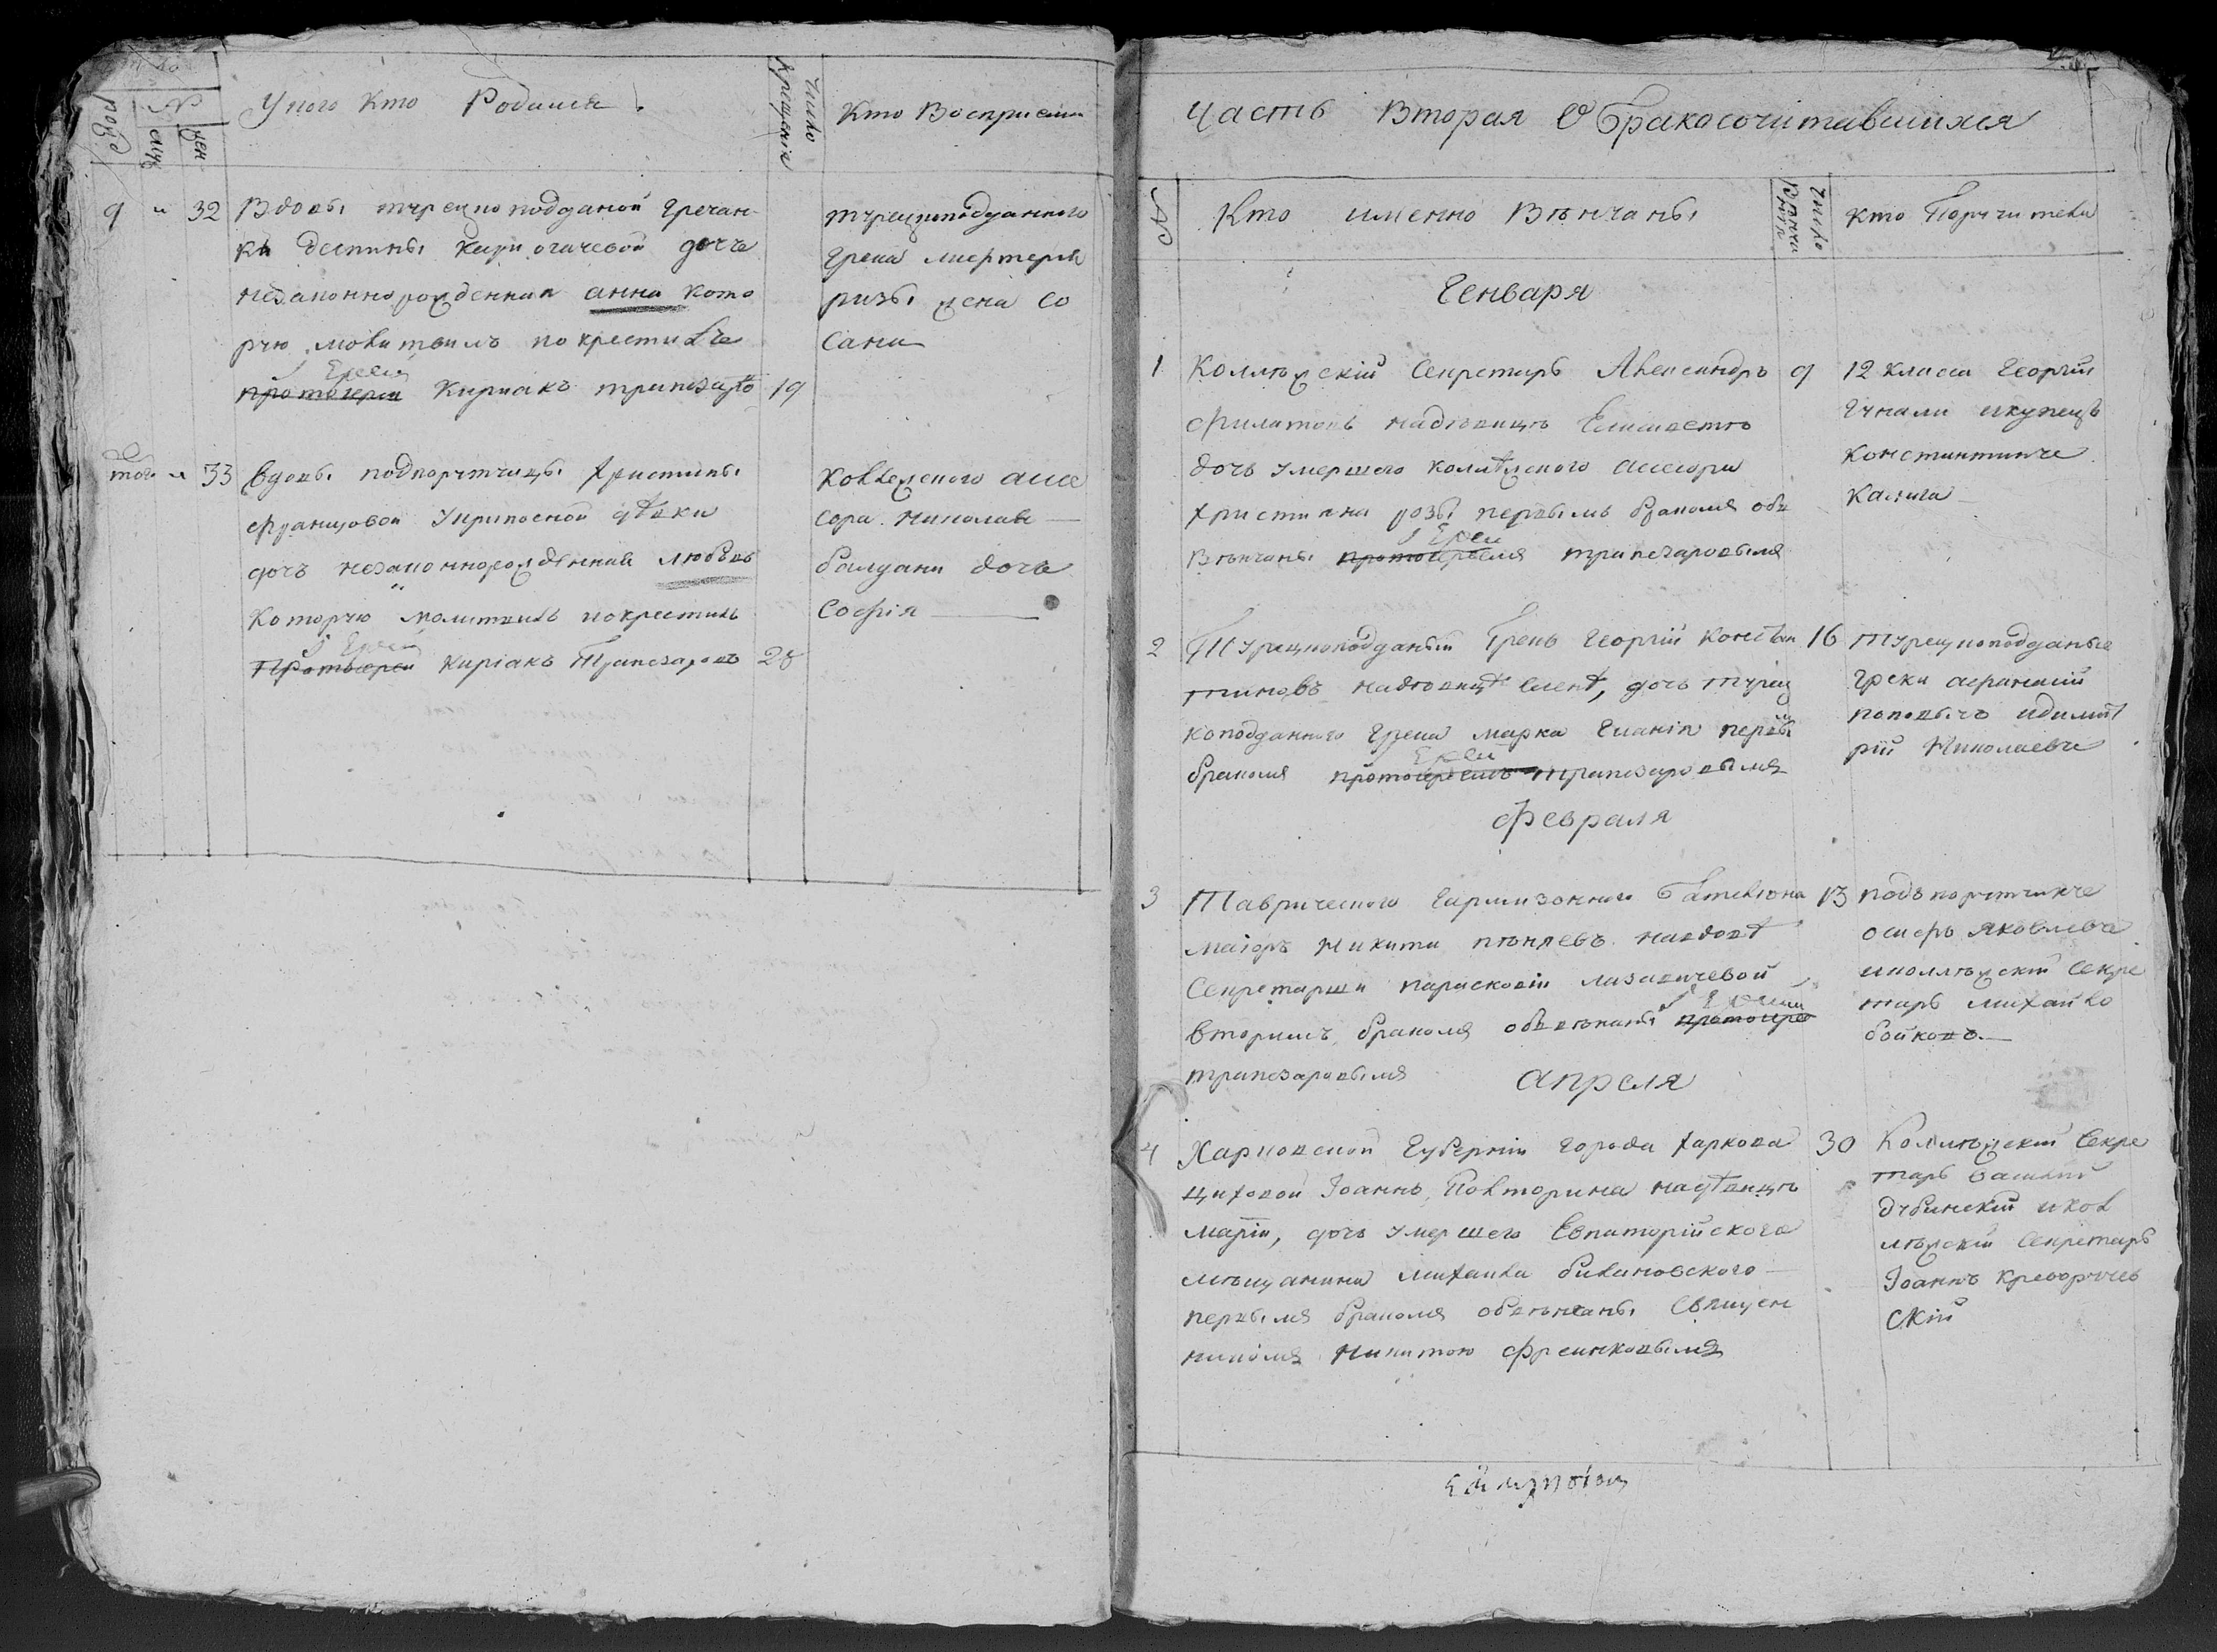 У ково Кто Родился
число крещенія
Кто Восприемни
рож
№
муж
жен
9 " 32 Вдовы турецкоподданой гречан
ки деспины карпогичевой дочь
незаконнорожденная анна кото
рую молитвилъ и покрестилъ
Ерей
протоіерей Кириакъ трапезаро 19
турецкоподданного
грека
ризы жена со
сана
того " 33 Вдовы подпорутчицы христины
францовой Украпосной дѣвки
дочь незаконнорожденная любовь
Которую молитвилъ покрестилъ
Ерей
Протоіерей Киріакъ Трапезаровъ 28
Коллежского асе
сора Николая
балдани дочь
Софія
Часть Вторая О Бракосочитавшихся
№
Кто именно Вѣнчаны
число Венчанія
Кто Поручители
Генваря
1 Коллѣжскій Секретарь Александръ 9
Филатовъ надѣвицѣ Елисаветѣ
дочь умершего колѣжского асесора
христиана розы первымъ бракомъ об
Вѣнчаны Ереи протоіереемъ трапезаровымъ
12 класса Георгій
Гунали икупецъ
Константинъ
Калига
2 Турецкоподданый Грекъ Георгій Констан 16
тиновъ надѣвицѣ еленѣ, дочь турец
коподданного Грека марка Гианія первы
бракомъ Ереи протоіереемъ трапезаровымъ
Турецкоподданые
греки афанасій
поповичъ идимит
рій Николаевъ
Февраля
3 Таврического Гарнизонного Баталіона 13
маіоръ Никита пѣняевъ навдовѣ
Секретарши парасковіи лазавичевой
вторимъ бракомъ обвѣнчаны Ереи протоіре
трапезаровымъ
подъпорутчикъ
осифъ Яковлевъ
иколлѣжскій секре
тарь михайло
бойковъ
Апреля
4 Харковской Губерніи города харкова 30
циховой Іоаннъ Полторина надѣвицѣ
маріи, дочь умершего Евпаторійского
мѣщанина михаила билиновского
первымъ бракомъ обвѣнчаны Священ
никомъ Никитою Фреинковымъ
Коллѣжскій Секре
тарь василій
дубинскій икол
лѣжскій Секретарь
Іоаннъ
скій